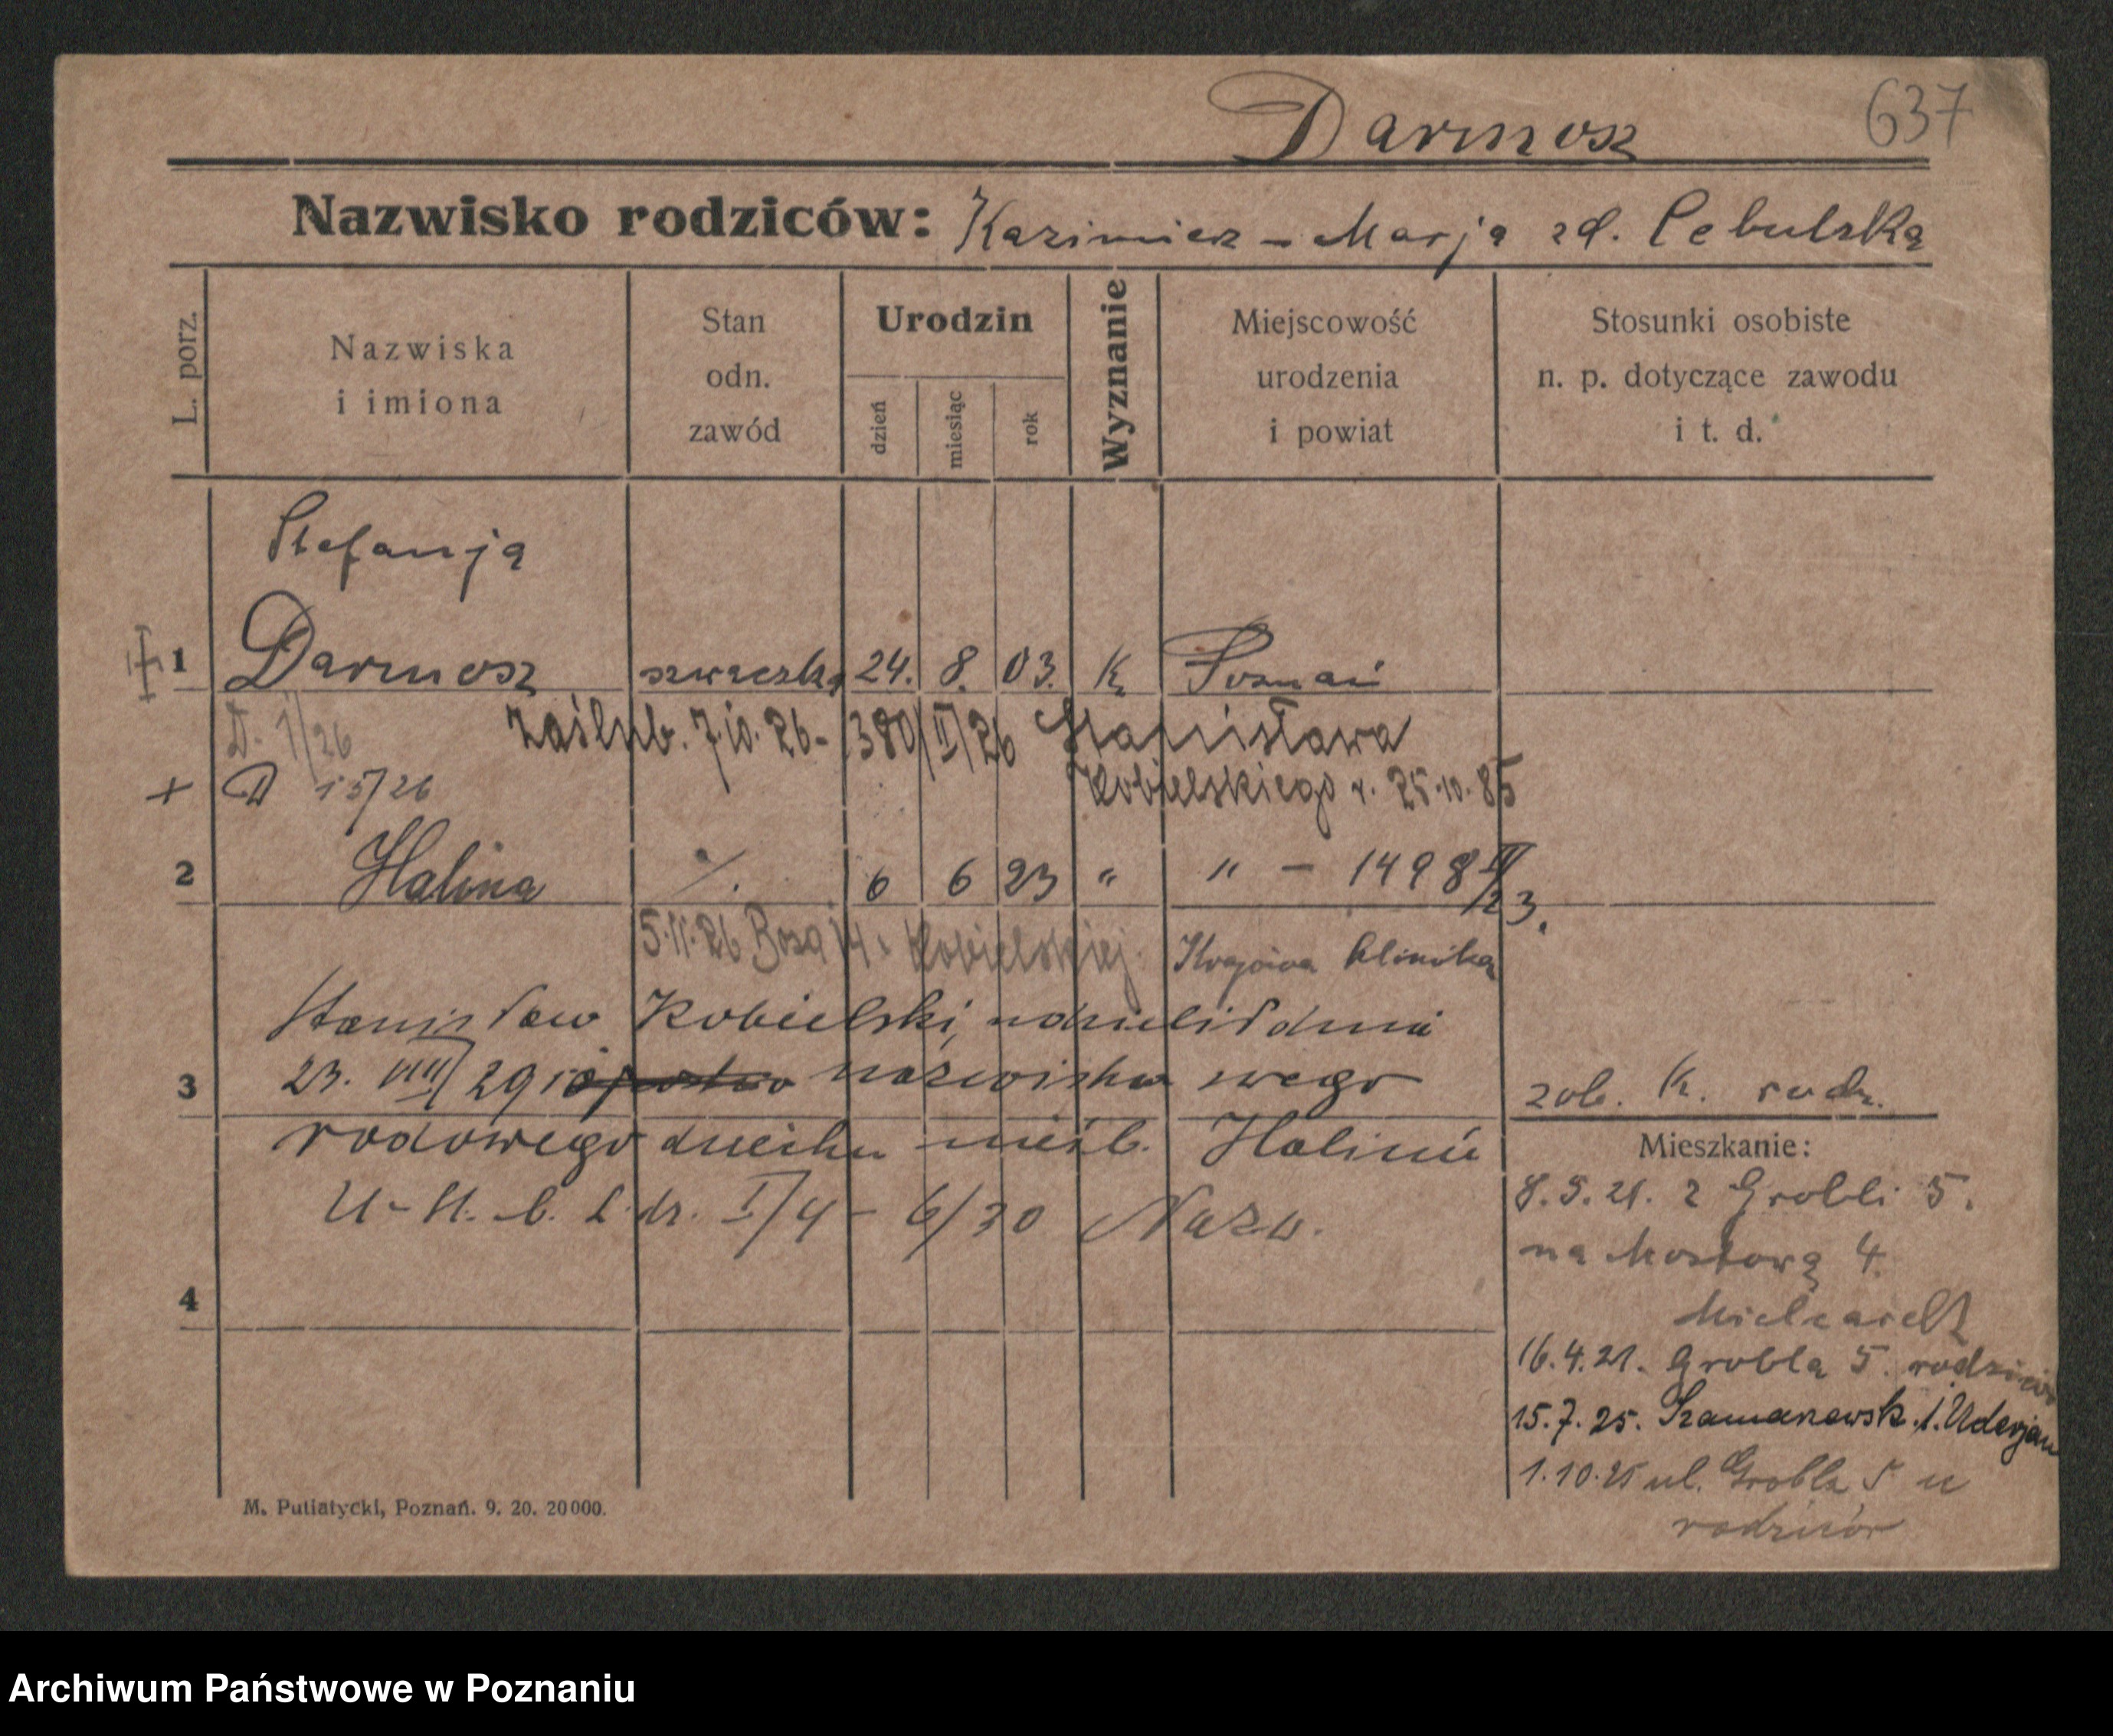 Darmosz 637
Nazwisko rodziców: Kazimierz – Marja zd. Cebulska
L. porz.
Nazwiska i imiona
Stan odn. zawód
Urodzin
dzień miesiąc rok
Wyznanie
Miejscowość urodzenia i powiat
Stosunki osobiste n. p. dotyczące zawodu i t. d.
Stefanja
1 Darmosz szwaczka 24. 8. 03. K Poznań
D. 1/26 zaślub. 7.10.26 - 380/II/26 Stanisława
+ D 15/26 Kobielskiego r. 25.10.85
2 Halina ./. 6 6 23 " " – 1498 II/23.
5.11.26 Kobielskiej. Krajowa klinika
Stanisław Kobielski, udzielił dnia
3 23. VIII/29 nazwiska swego zob. K. rodz.
rodowego dziecku nieśl. Halinie
Mieszkanie:
U-St. b. L. dz. I/4 - 6/30 Nazw.
8.3.21. z Grobli 5.
na Mostową 4.
4 Mielcarek
16.4.21. Grobla 5. rodziców
15.7.25. 1.
1.10.25 ul. Grobla 5 u
rodziców
M. Putiatycki, Poznań. 9. 20. 20000.
Archiwum Państwowe w Poznaniu